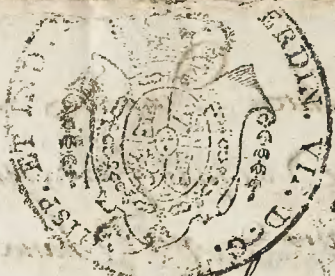 FERDIN. VI. D. G.
HISP. ET IND